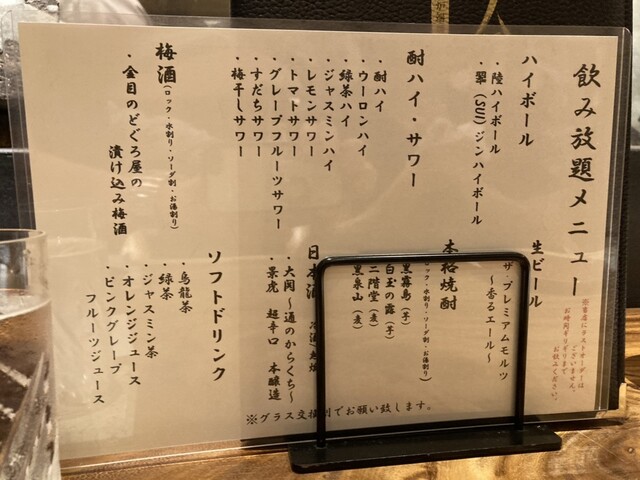 飲み放題メニュー
※当店にラストオーダーは
ございません。
お時間ギリギリまで
お飲みください。
ハイボール
・陸ハイボール
・翠(SUI)ジンハイボール
生ビール
ザ・プレミアムモルツ
～香るエール～
酎ハイ・サワー
・酎ハイ
・ウーロンハイ
・緑茶ハイ
・ジャスミンハイ
・レモンサワー
・トマトサワー
・グレープフルーツサワー
・すだちサワー
・梅干しサワー
本格焼酎
ロック・水割り・ソーダ割・お湯割り)
黒霧島(芋)
白玉の露(芋)
二階堂(麦)
黒泉山(麦)
日本酒
・大関～通のからくち～
・景虎 超辛口 本醸造
梅酒(ロック・水割り・ソーダ割・お湯割り)
・金目のどぐろ屋の
漬け込み梅酒
ソフトドリンク
・烏龍茶
・緑茶
・ジャスミン茶
・オレンジジュース
・ピンクグレープ
フルーツジュース
※グラス交換制でお願い致します。